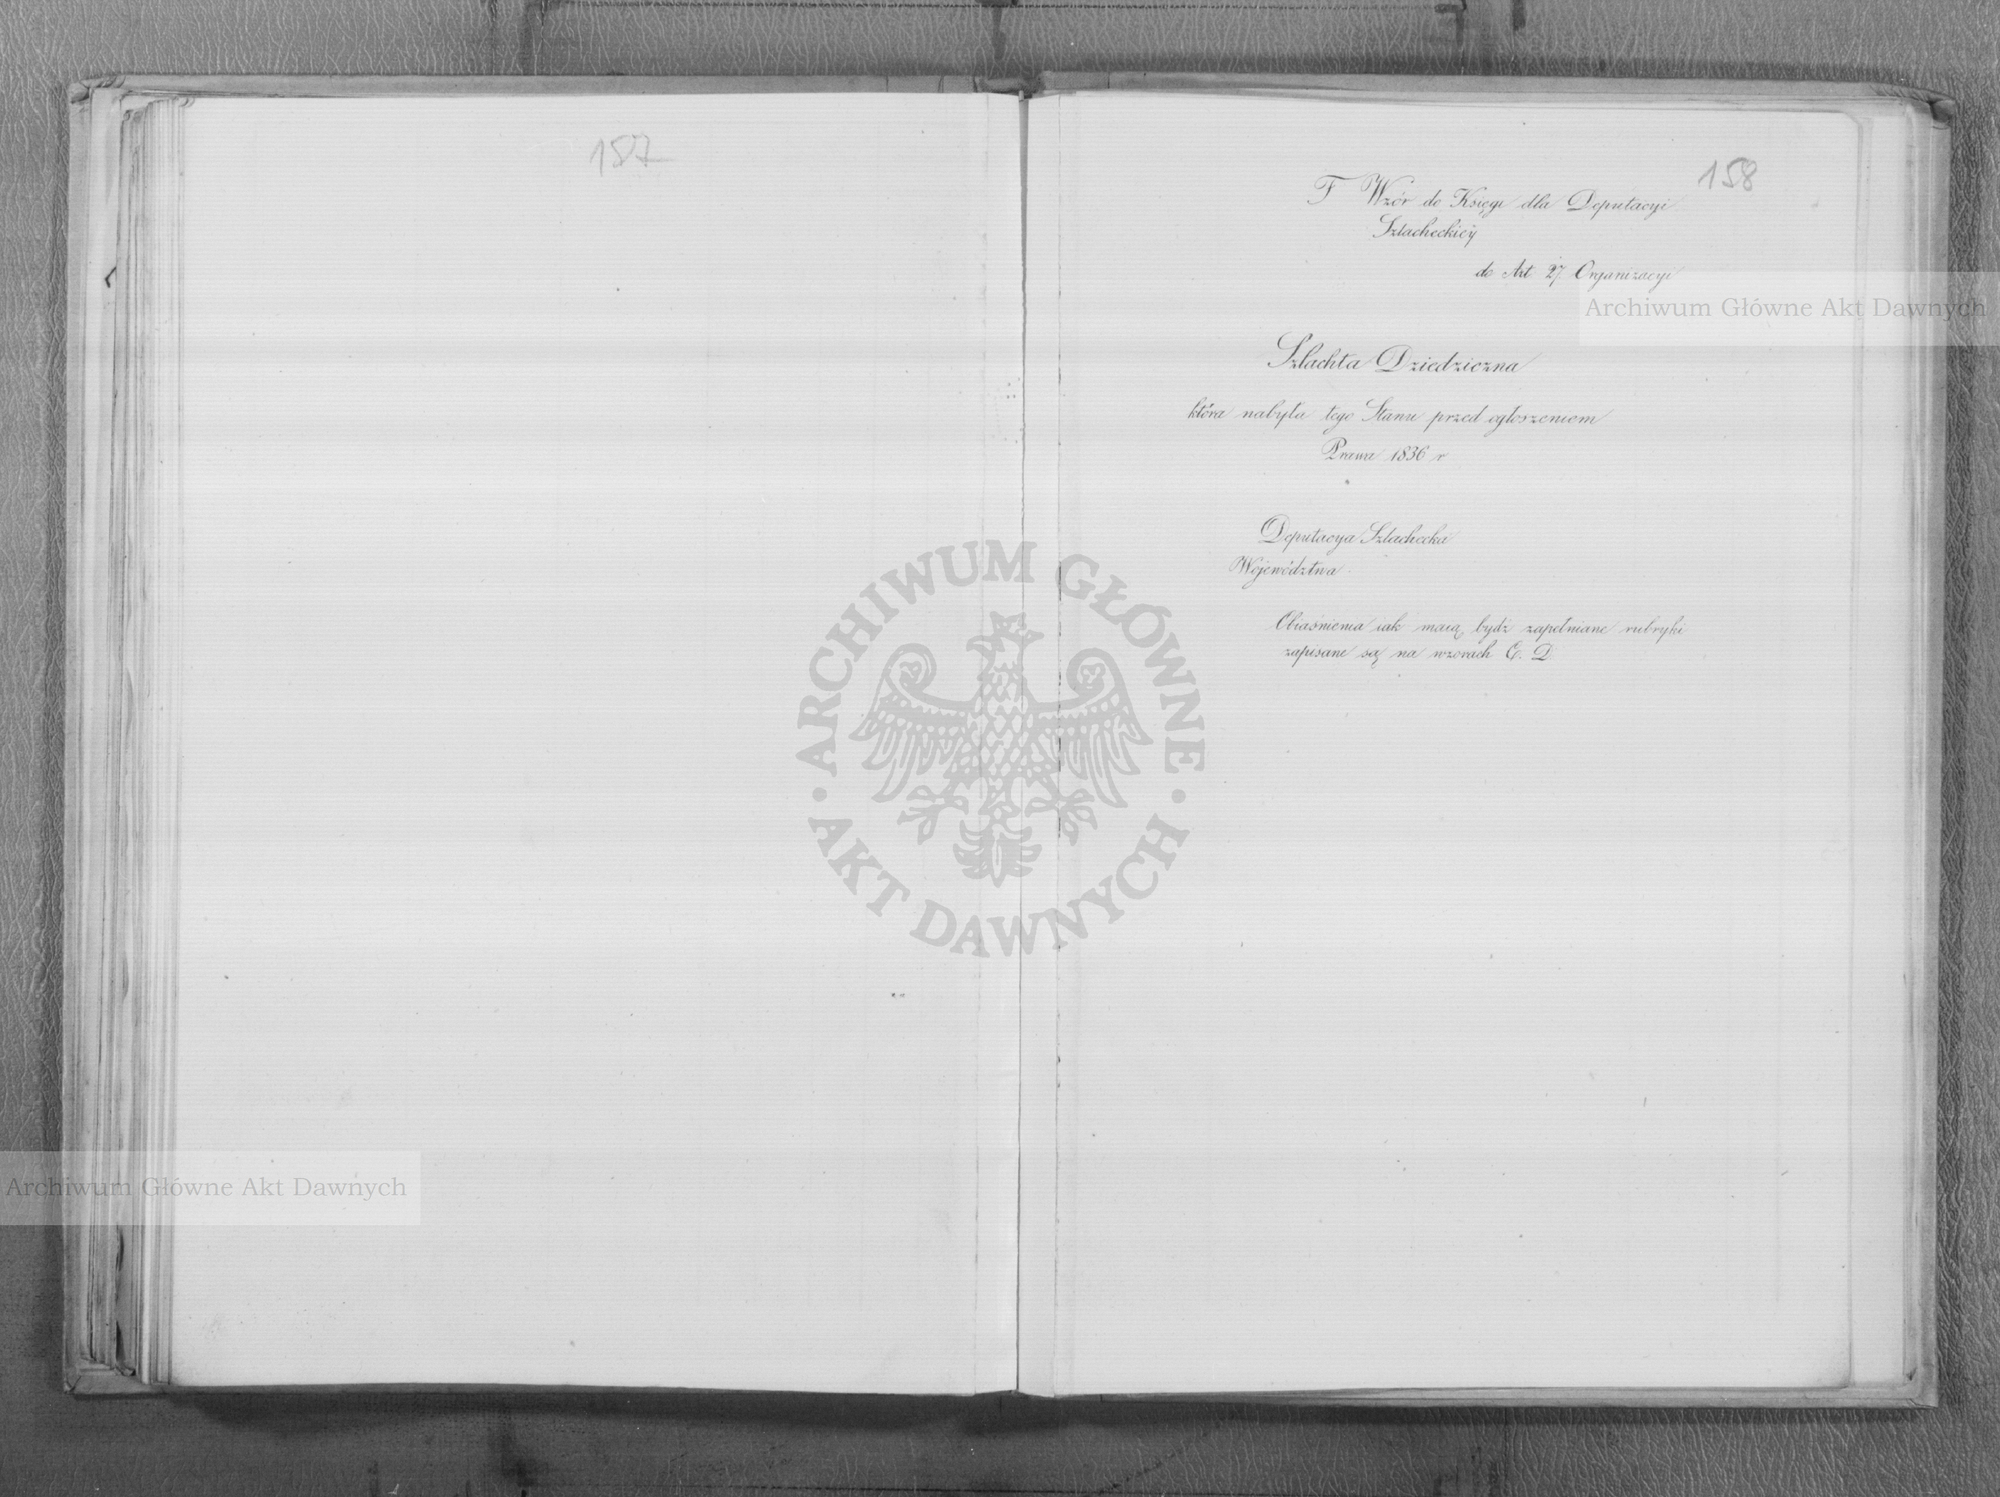 157
158
F Wzór do Księgi dla Deputacyi
Szlacheckiéy
do Art 27 Organizacyi
Archiwum Główne Akt Dawnych
Szlachta Dziedziczna
która nabyła tego Stanu przed ogłoszeniem
Prawa 1836 r
Deputacya Szlachecka
Województwa
Obiaśnienia iak maią bydź zapełniane rubryki
zapisane są na wzorach C. D
ARCHIWUM GŁÓWNE
AKT DAWNYCH
Archiwum Główne Akt Dawnych